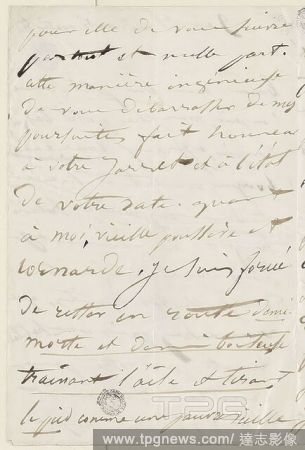 pour elle de vous suivre
partout et nulle part.
cette manière ingénieuse
de vous débarrasser de mes
poursuites fait honneur
à votre jarret et à l'état
de votre rate. quant
à moi, vieille poussive et
cornarde, je suis forcée
de rester en route demi
morte et demi boiteuse
traînant l'aile et tirant
le pied comme une pauvre vieille
TPG
www.tpgnews.com / 達志影像